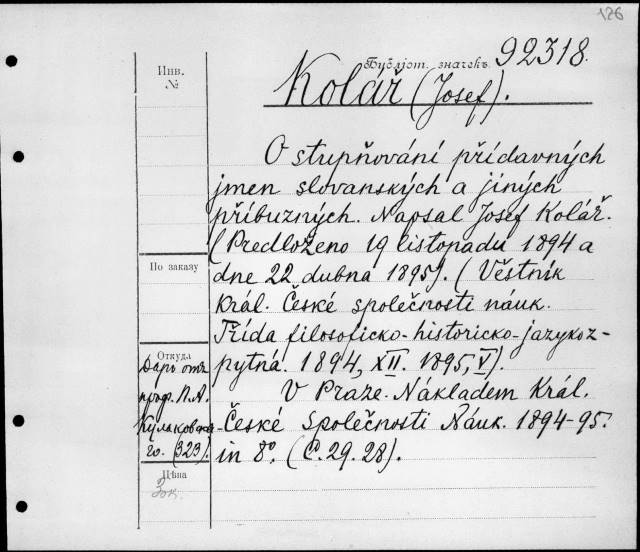 126
Библіот. значекъ 92318.
Инв.
№
Kolář (Josef).
O stupňování přídavných
jmen slovanských a jiných
příbuzných. Napsal Josef Kolář.
(Předloženo 19 listopadu 1894 a
По заказу
dne 22 dubna 1895). (Věstník
král. České společnosti náuk.
Třída filosoficko-historicko-jazykoz-
pytná. 1894, XII. 1895, V).
Откуда
Даръ отъ
проф. П.А.
Кулаковска-
го. (323).
V Praze. Nákladem Král.
České Společnosti Náuk. 1894-95.
in 8º. (C. 29. 28).
Цѣна
30к.